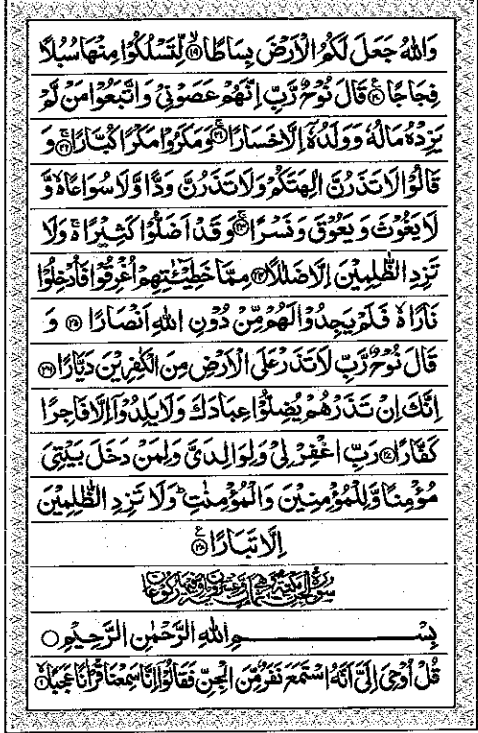 وَاللّٰهُ جَعَلَ لَكُمُ الْاَرْضَ بِسَاطًا ۙ﴿۱۹﴾ لِّتَسْلُكُوْا مِنْهَا سُبُلًا
فِجَاجًا ﴿۲۰﴾ قَالَ نُوْحٌ رَّبِّ اِنَّهُمْ عَصَوْنِیْ وَاتَّبَعُوْا مَنْ لَّمْ
یَزِدْهُ مَالُهٗ وَوَلَدُهٗۤ اِلَّا خَسَارًا ﴿۲۱﴾ وَمَكَرُوْا مَكْرًا كُبَّارًا ﴿۲۲﴾ وَ
قَالُوْا لَا تَذَرُنَّ اٰلِهَتَكُمْ وَلَا تَذَرُنَّ وَدًّا وَّلَا سُوَاعًا ۙ وَّ
لَا یَغُوْثَ وَ یَعُوْقَ وَ نَسْرًا ﴿۲۳﴾ وَ قَدْ اَضَلُّوْا كَثِیْرًا ۚ وَ لَا
تَزِدِ الظّٰلِمِیْنَ اِلَّا ضَلٰلًا ﴿۲۴﴾ مِمَّا خَطِیْٓـٰٔتِهِمْ اُغْرِقُوْا فَاُدْخِلُوْا
نَارًا ۙ فَلَمْ یَجِدُوْا لَهُمْ مِّنْ دُوْنِ اللّٰهِ اَنْصَارًا ﴿۲۵﴾ وَ
قَالَ نُوْحٌ رَّبِّ لَا تَذَرْ عَلَی الْاَرْضِ مِنَ الْكٰفِرِیْنَ دَیَّارًا ﴿۲۶﴾
اِنَّكَ اِنْ تَذَرْهُمْ یُضِلُّوْا عِبَادَكَ وَلَا یَلِدُوْۤا اِلَّا فَاجِرًا
كَفَّارًا ﴿۲۷﴾ رَبِّ اغْفِرْ لِیْ وَلِوَالِدَیَّ وَلِمَنْ دَخَلَ بَیْتِیَ
مُؤْمِنًا وَّلِلْمُؤْمِنِیْنَ وَالْمُؤْمِنٰتِ ؕ وَلَا تَزِدِ الظّٰلِمِیْنَ
اِلَّا تَبَارًا ﴿۲۸﴾
سُوْرَةُ الْجِنِّ مَكِّیَّةٌ
بِسْمِ اللّٰهِ الرَّحْمٰنِ الرَّحِیْمِ
قُلْ اُوْحِیَ اِلَیَّ اَنَّهُ اسْتَمَعَ نَفَرٌ مِّنَ الْجِنِّ فَقَالُوْۤا اِنَّا سَمِعْنَا قُرْاٰنًا عَجَبًا ۙ﴿۱﴾